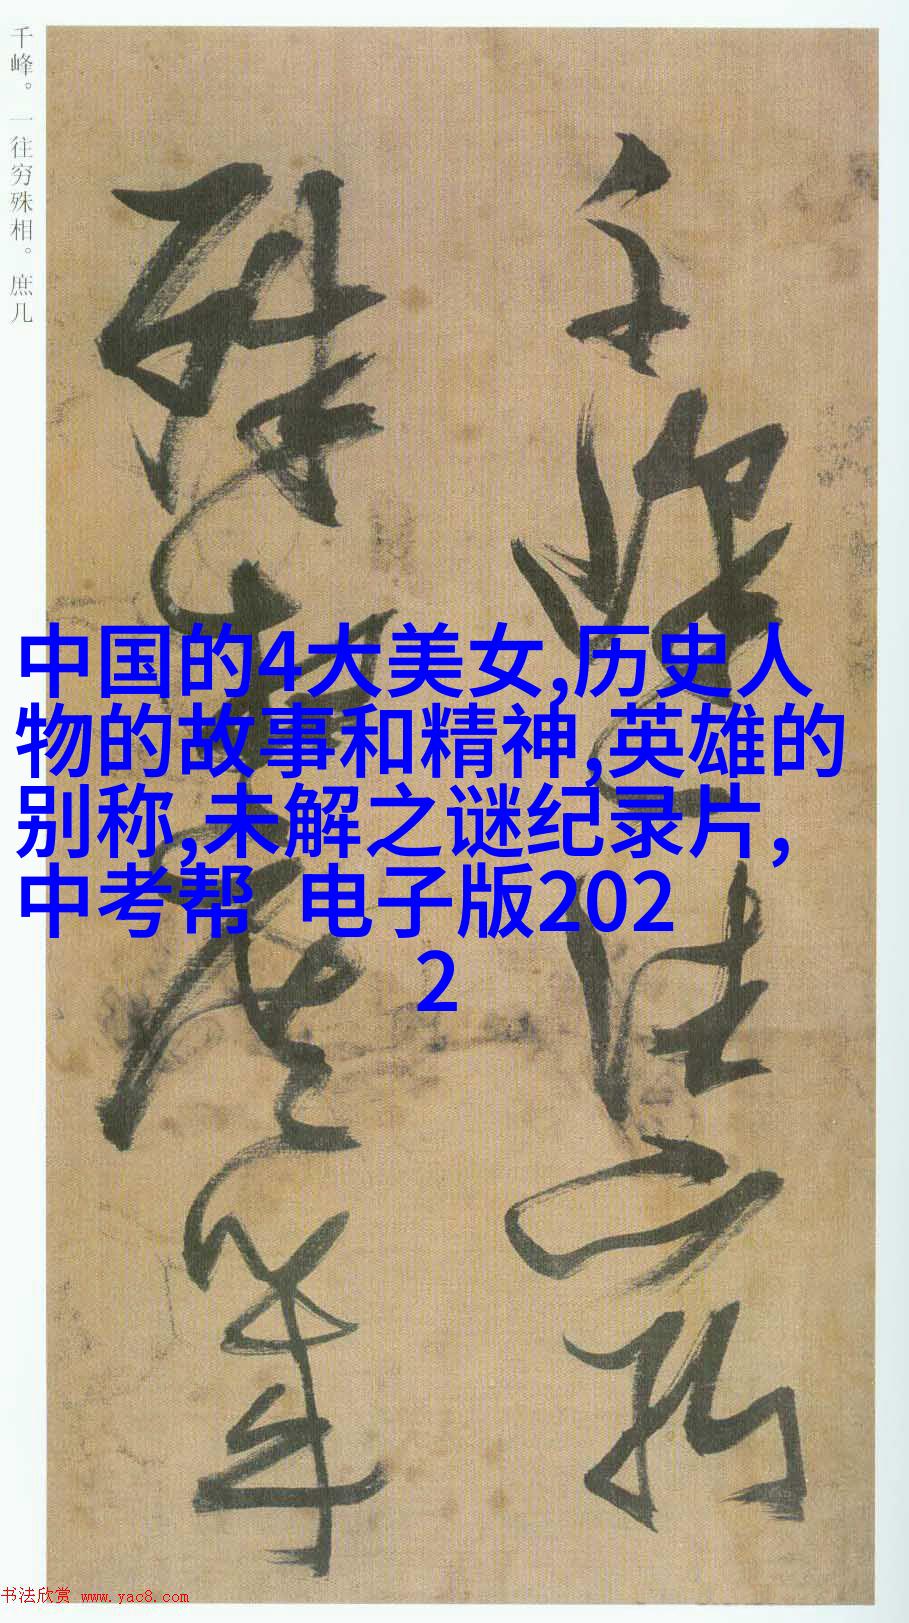 千峰。一往穷殊相。庶几
千峰一往穷
殊相庶几
中国的4大美女,历史人
物的故事和精神,英雄的
别称,未解之谜纪录片,
中考帮 电子版202
2
书法欣赏 www.yac8.com